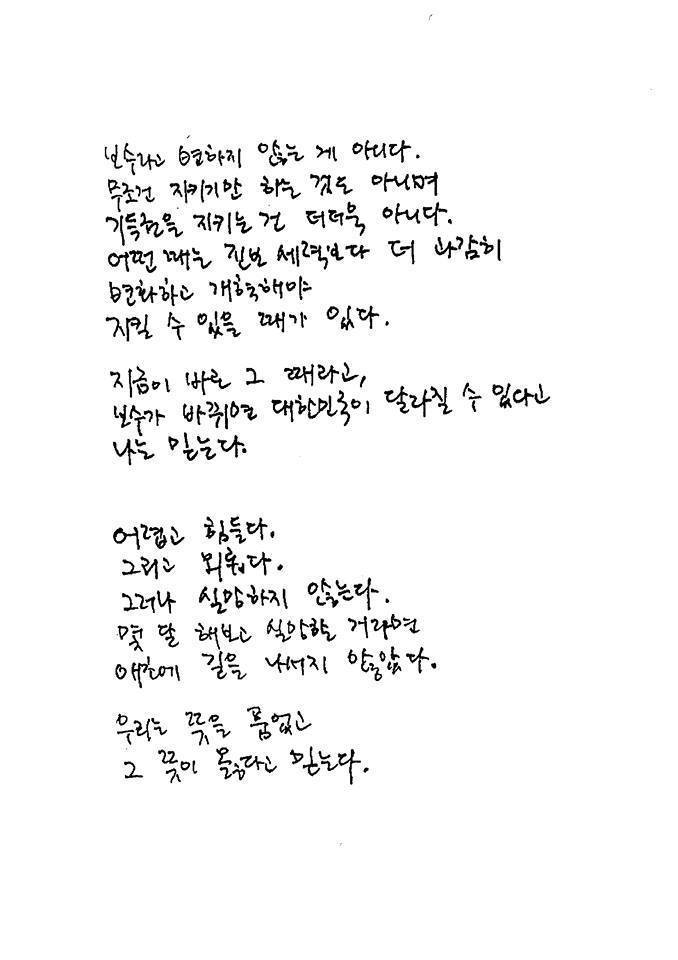 보수라고 변하지 않는 게 아니다.
무조건 지키기만 하는 것도 아니며
기득권을 지키는 건 더더욱 아니다.
어떤 때는 진보 세력보다 더 과감히
변화하고 개혁해야
지킬 수 있을 때가 있다.
지금이 바로 그 때라고,
보수가 바뀌면 대한민국이 달라질 수 있다고
나는 믿는다.
어렵고 힘들다.
그리고 외롭다.
그러나 실망하지 않는다.
몇 달 해보고 실망할 거라면
애초에 길을 나서지 않았다.
우리는 뜻을 품었고
그 뜻이 옳다고 믿는다.